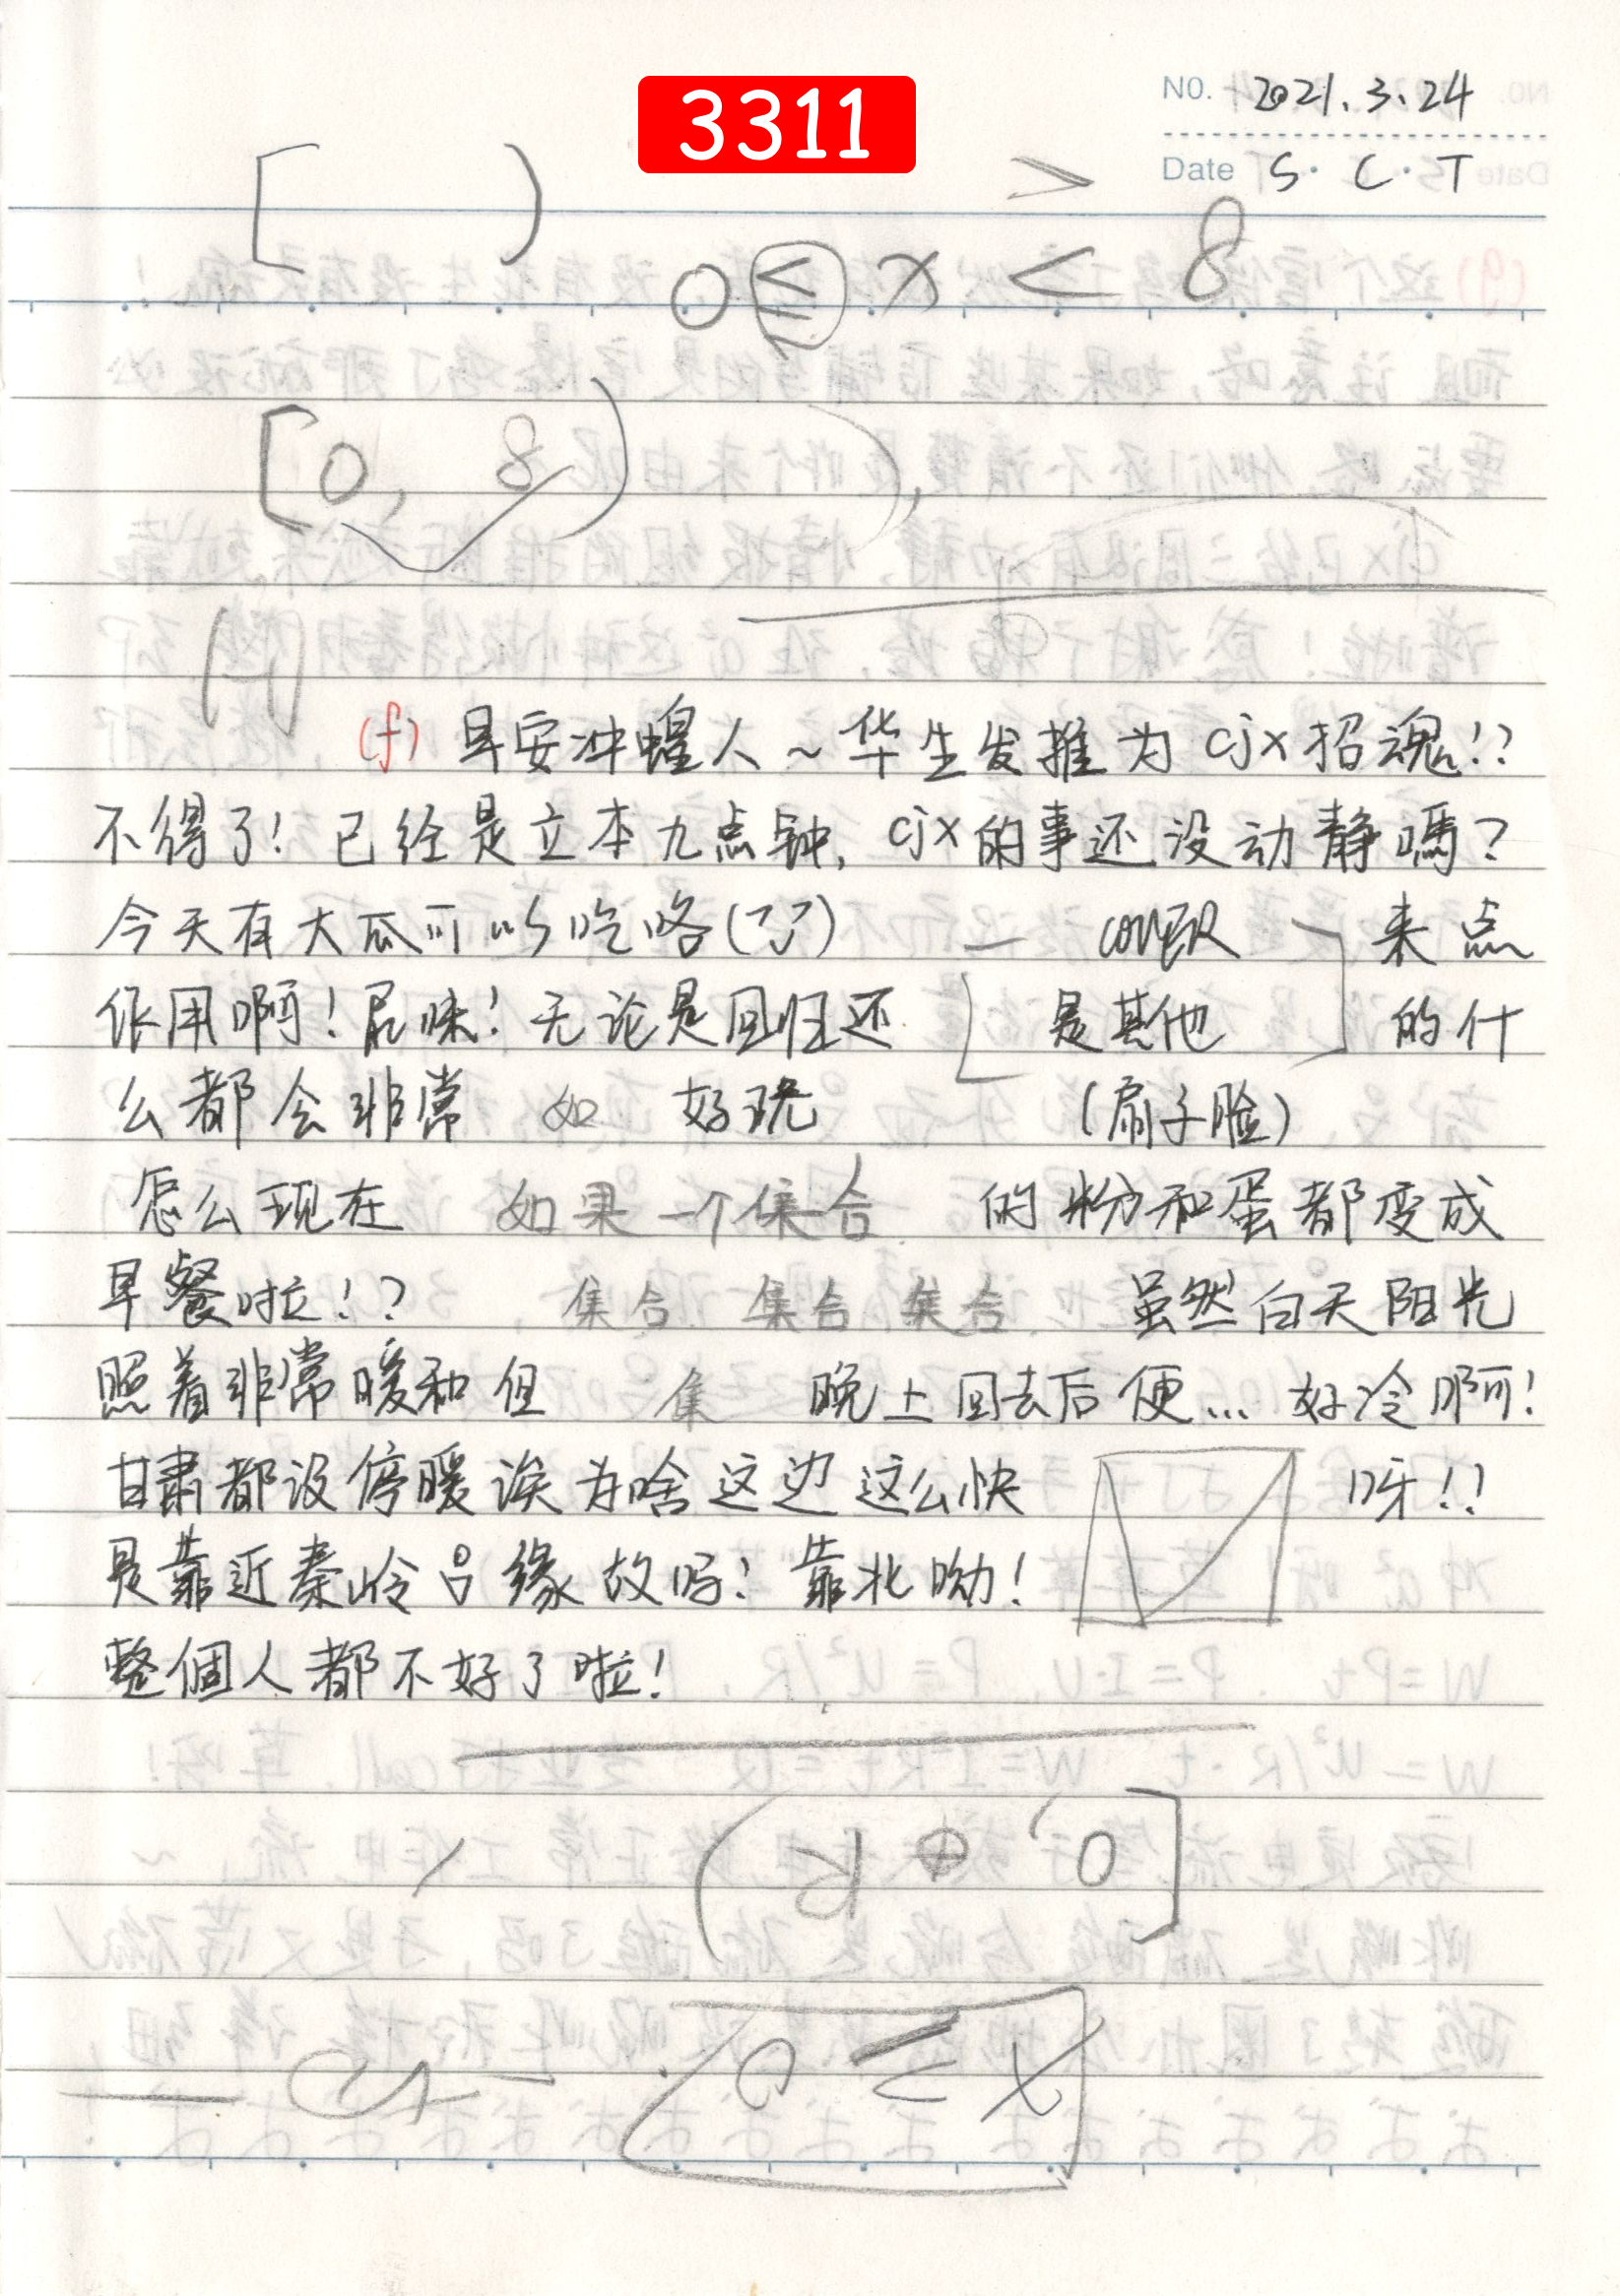 3311
NO. 2021.3.24
Date S·C·T
[ )
>
0 ≤ x < 8
[0, 8)
(f) 早安冲蝗人~华生发推为cjx招魂!?
不得了!已经是立本九点钟,cjx的事还没动静嗎?
今天有大瓜可以吃咯(了了) — 来点
作用啊!屁味!无论是回归还 是其他 的什
么都会非常 如 好玩 (扇子脸)
怎么现在 如果一个集合 的粉和蛋都变成
早餐啦!? 集合 集合 集合 虽然白天阳光
照着非常暖和但 集 晚上回去后便... 好冷啊!
甘肃都没停暖诶为啥这边这么快 呀!?
是靠近秦岭吕缘故吗?靠北呦!
整個人都不好了啦!
[0, R)
x ≥ 0